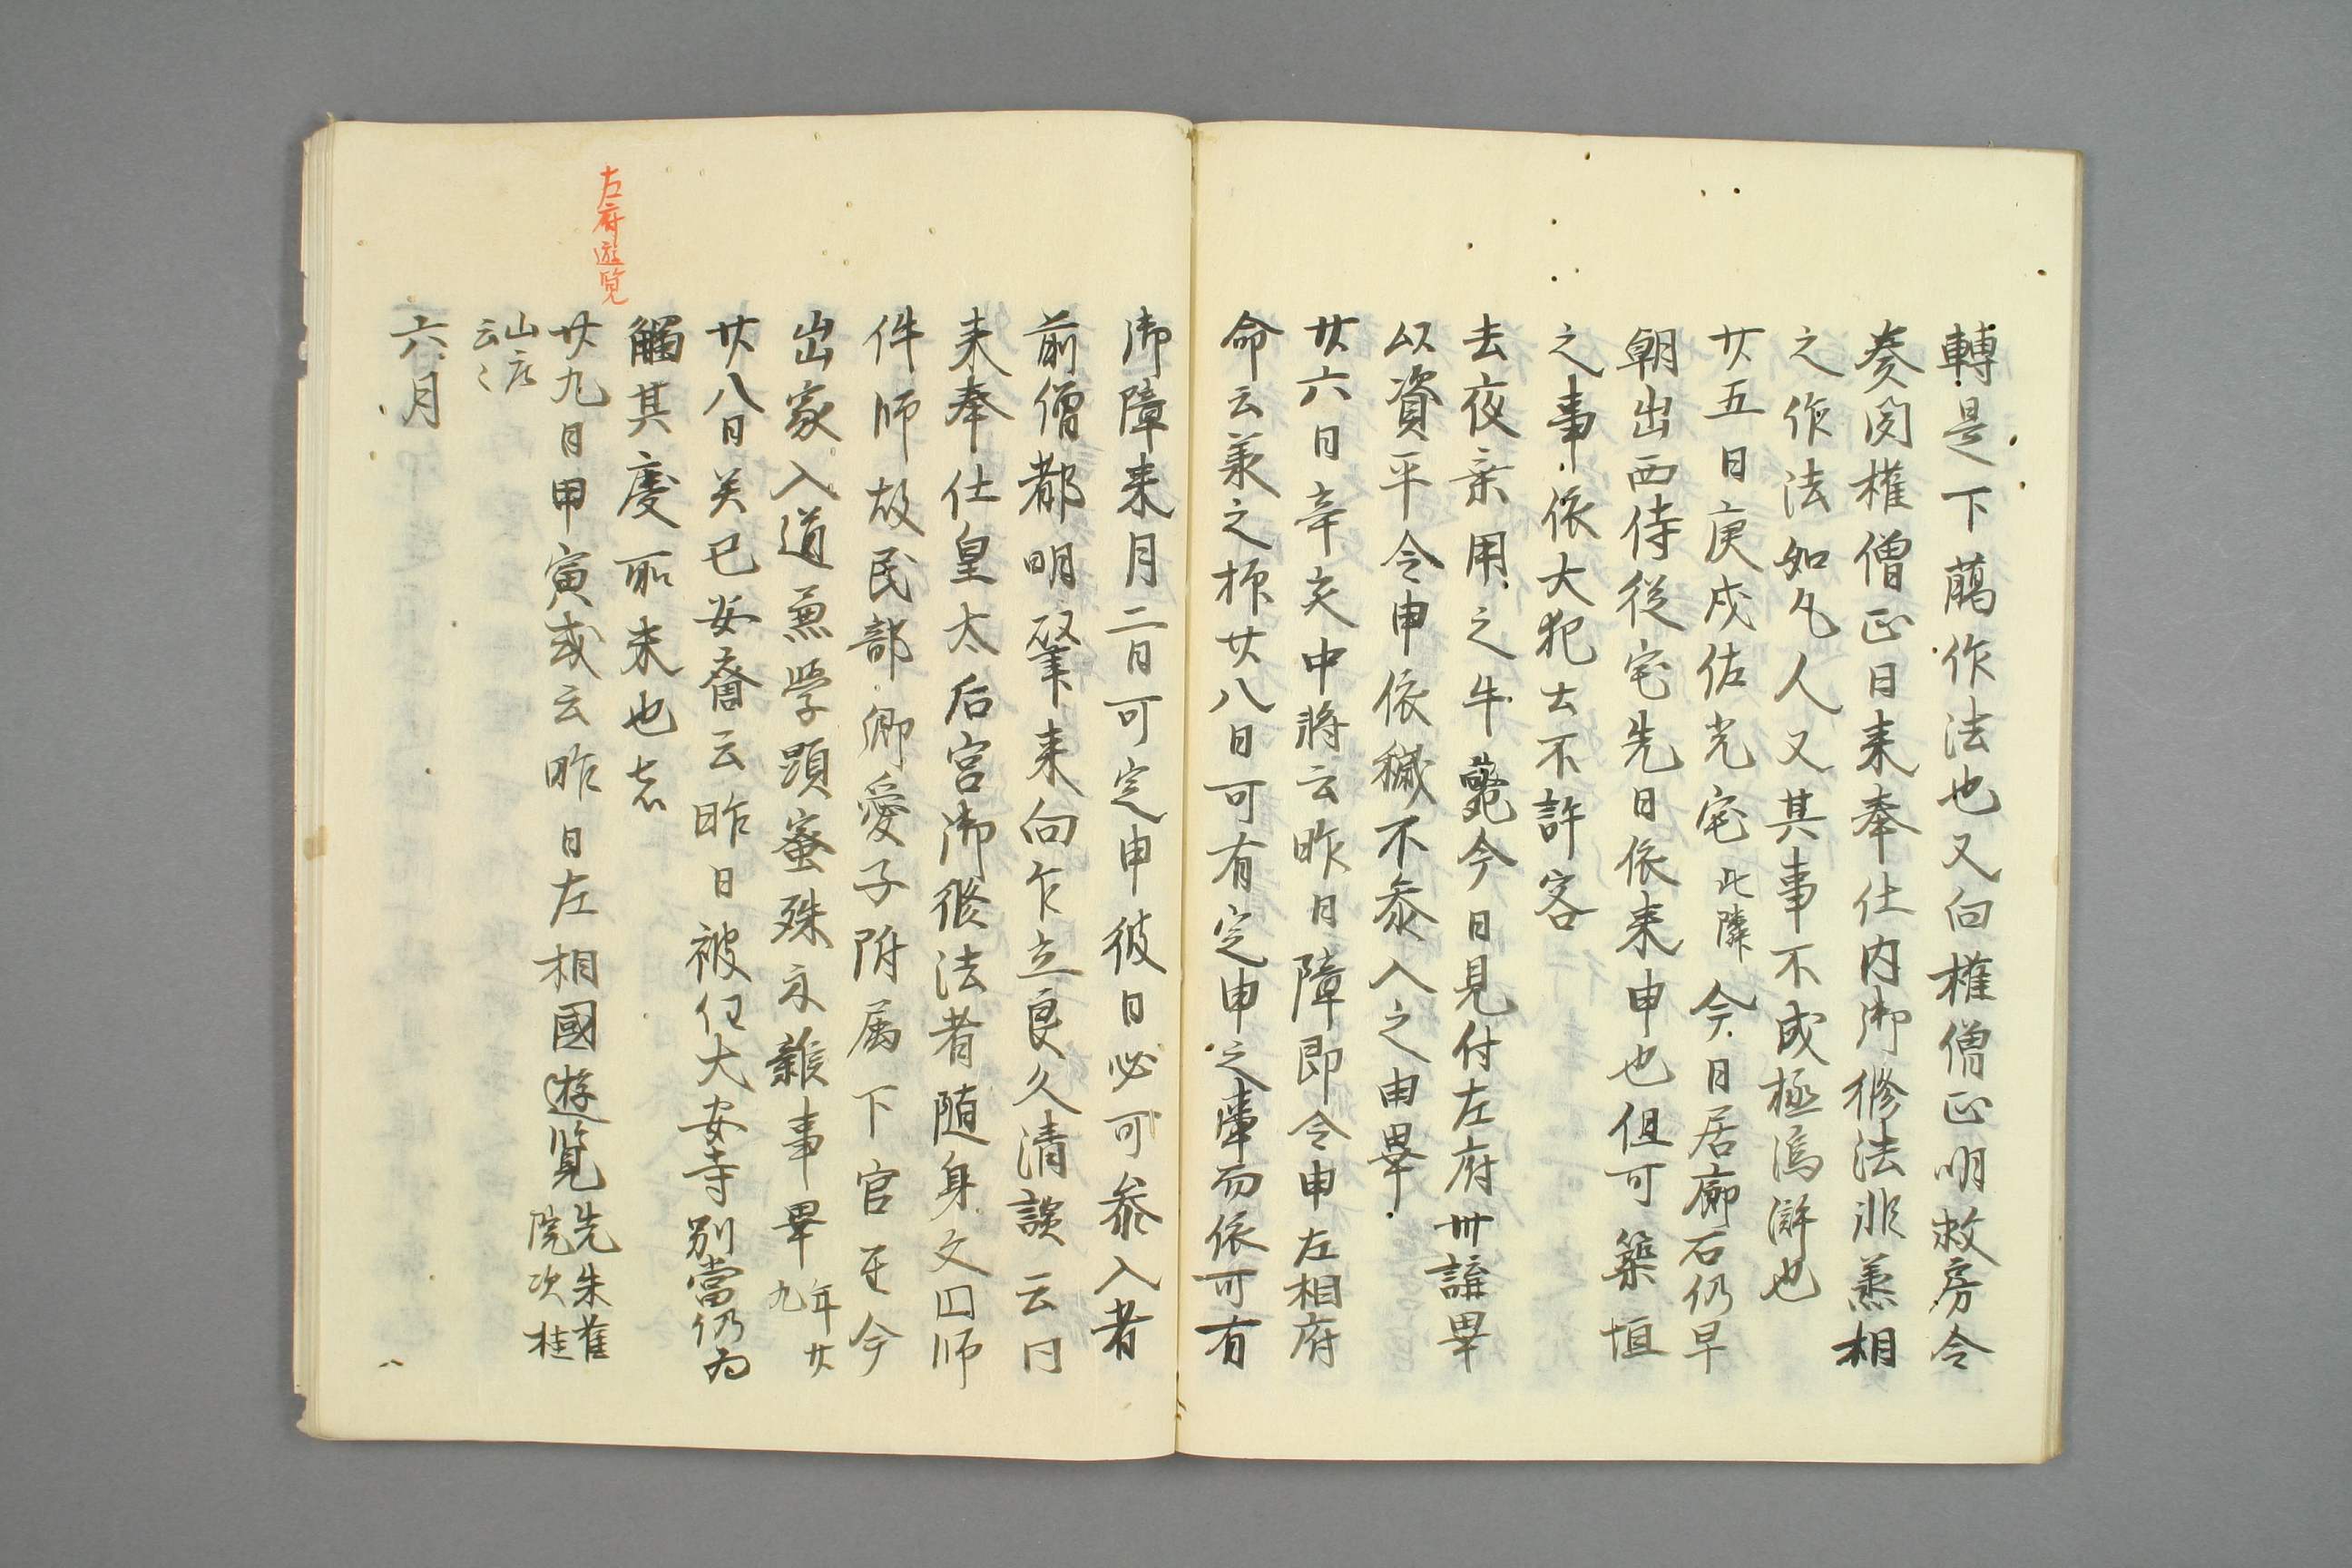 轉是下﨟作法也又向權僧正明救房令
奏聞權僧正日来奉仕内御修法非兼相
之作法如凡人又其事不成極嗚滸也
廿五日庚戌佐光宅此隣今日居廊石仍早
朝出西侍從宅先日依来申也但可築垣
之事依大犯土不許容
去夜乗用之牛斃今日見付左府卅講畢
以資平令申依穢不参入之由畢
廿六日辛亥中將云昨日障即令申左相府
命云兼之廿八日可有定申之事而依可有
御障来月二日可定申彼日必可参入者
前僧都明肇来向乍立良久清談云日
来奉仕皇太后宮御修法者随身文円師
件師故民部卿愛子附属下官至今
出家入道兼学顕蜜殊示雜事畢年廿
九
廿八日癸巳安奝云昨日被任大安寺別當仍為
觸其慶所来也者
左府遊覧
廿九日甲寅或云昨日左相國遊覧先朱雀
院次桂
山庄
云々
六月